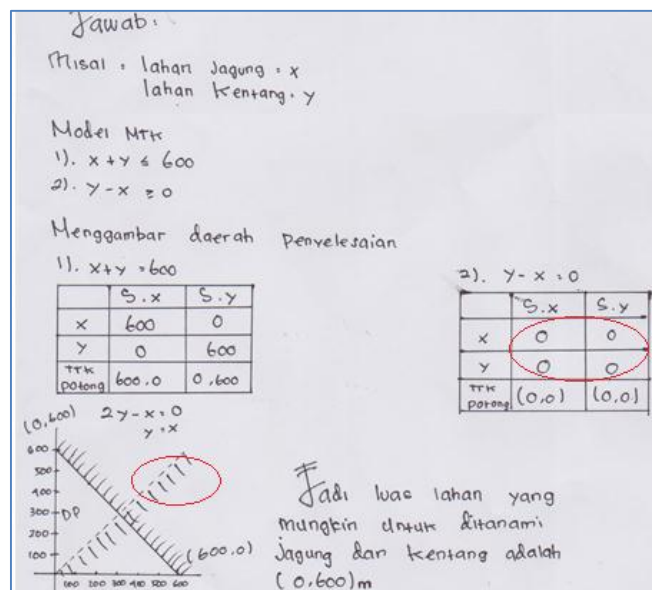 Jawab:
Misal : lahan Jagung : x
lahan kentang : y
Model MTK
1). x + y ≤ 600
2). y - x ≥ 0
Menggambar daerah penyelesaian
1). x + y = 600
S.x S.y
x 600 0
y 0 600
TTK potong 600.0 0,600
2). y - x = 0
S.x S.y
x 0 0
y 0 0
TTK potong (0,0) (0,0)
2y - x = 0
y = x
(0,600)
600
500
400
300
200
100
DP
(600.0)
100 200 300 400 500 600
Jadi luas lahan yang
mungkin untuk ditanami
jagung dan kentang adalah
(0,600) m